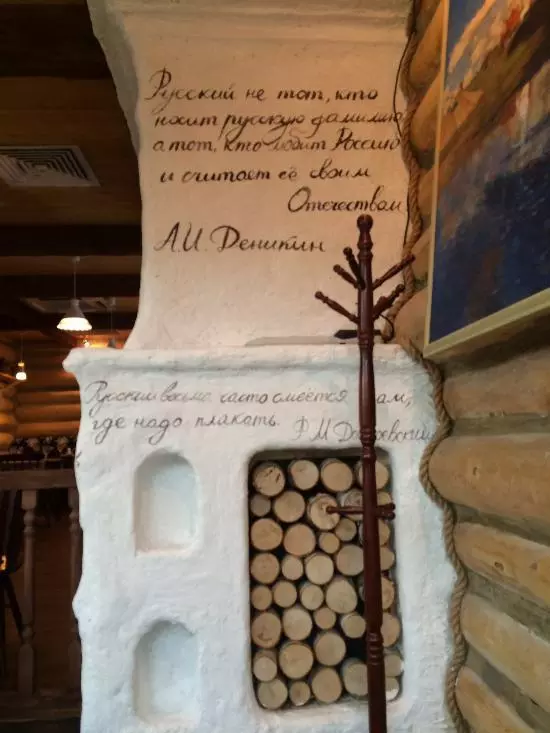 Русский не тот, кто
носит русскую фамилию,
а тот, кто любит Россию
и считает её своим
Отечеством
А.И. Деникин
Русский весьма часто смеётся там,
где надо плакать.
Ф.М Достоевский